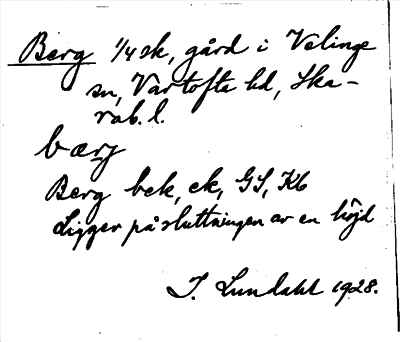 Berg 1/4 sk, gård i Valinge
sn, Vartofta hd, Ska-
rab. l.
bærj
Berg bek, ek, GS, Kb
Ligger på sluttningen av en höjd
I. Lundahl 1928.